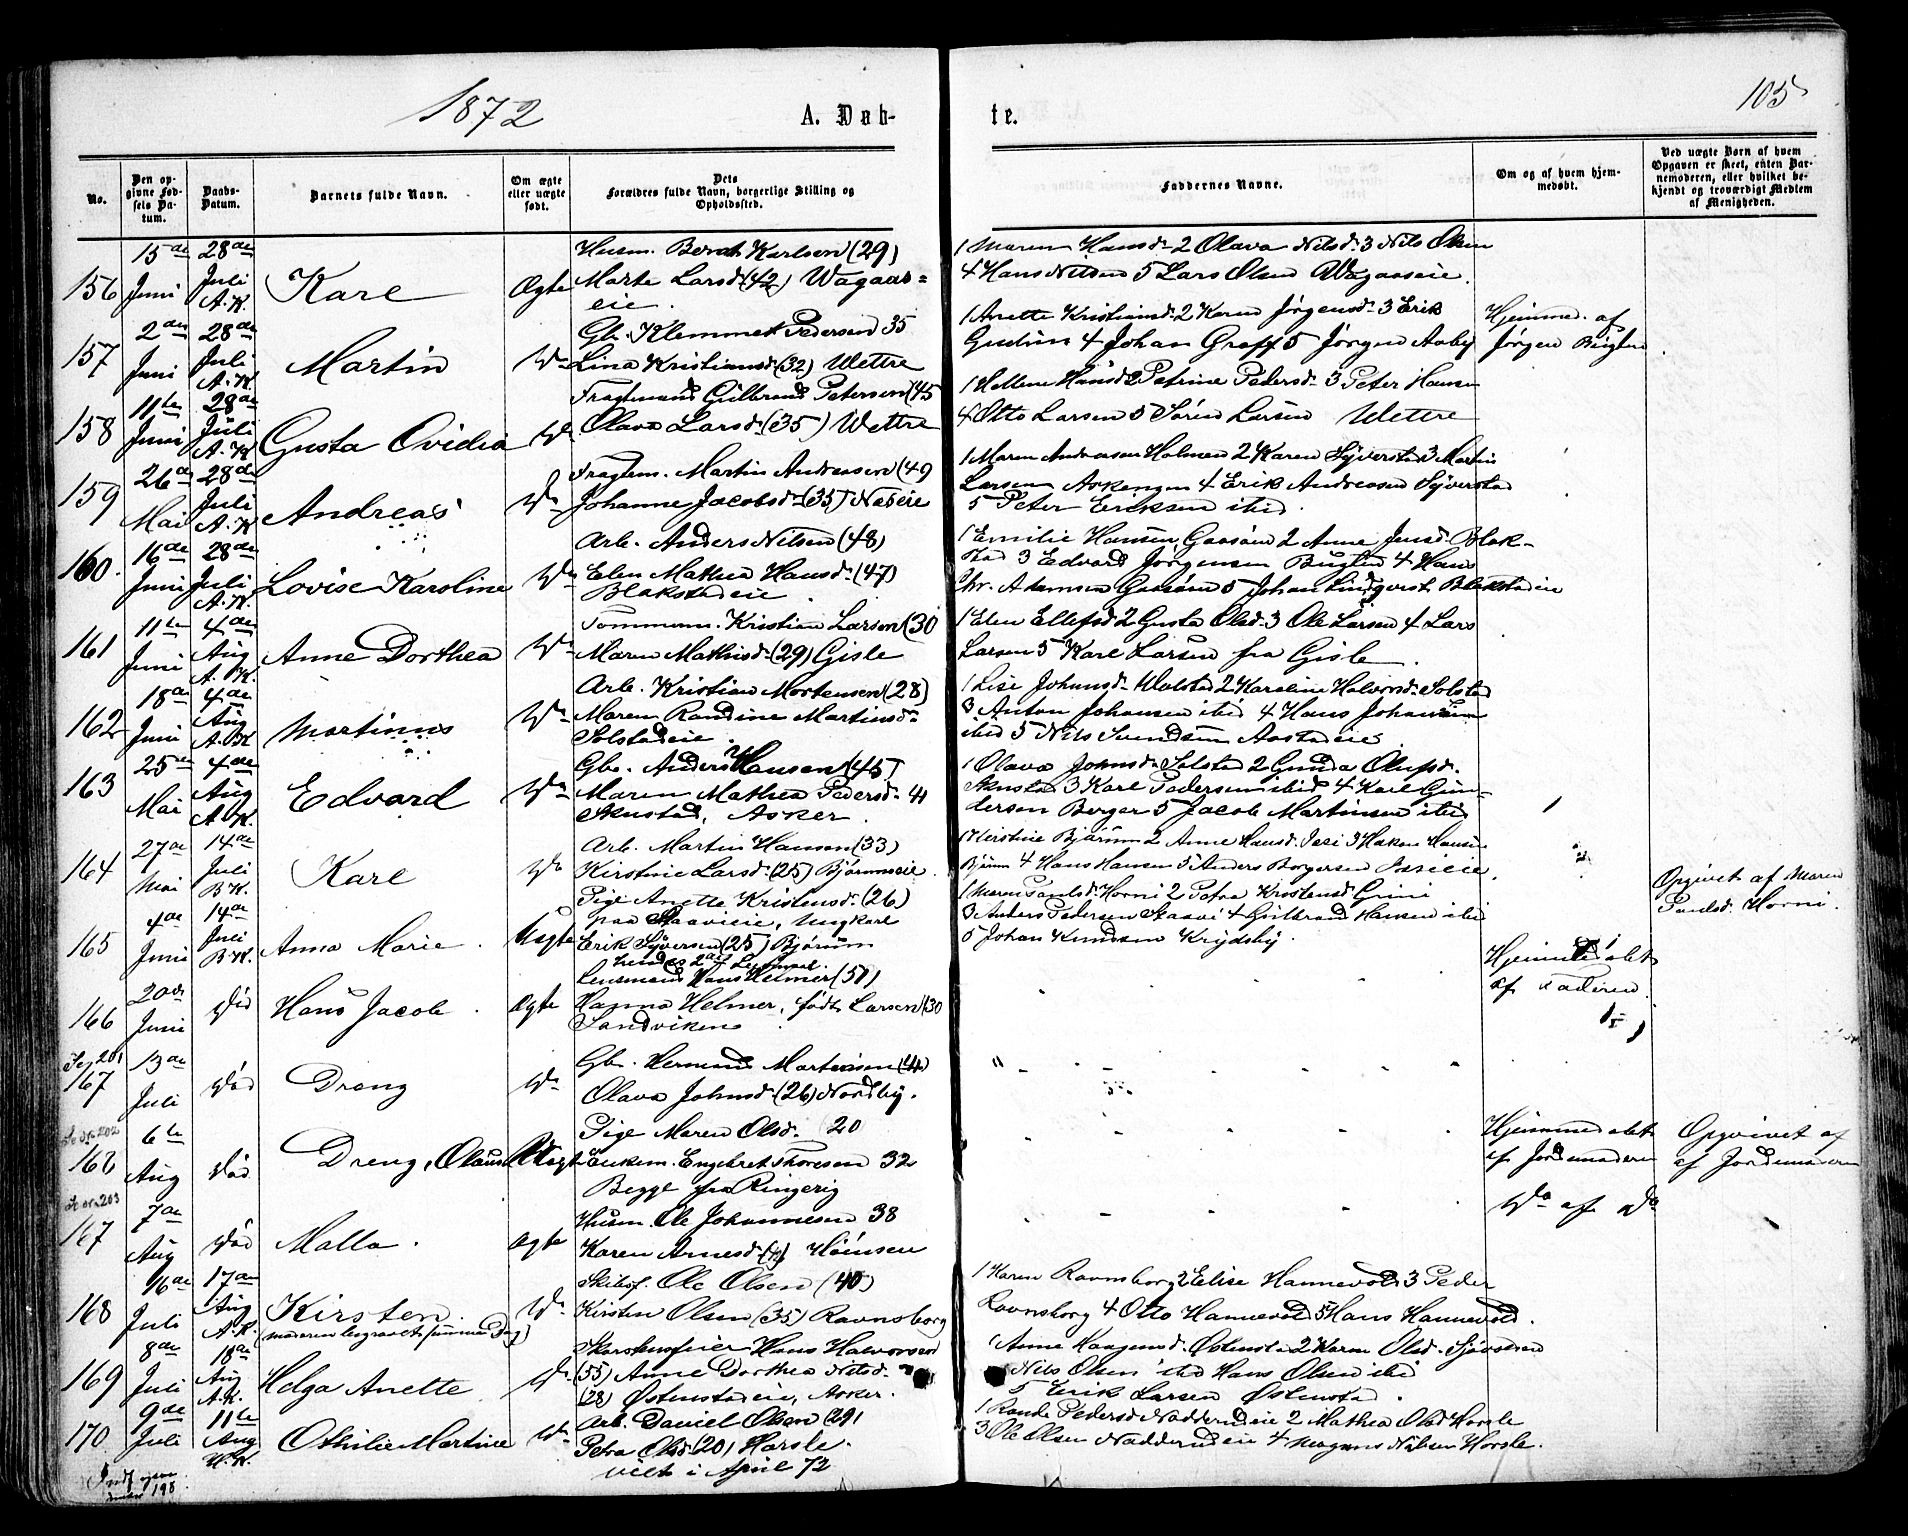 1872
A. Døb-
te.
105
No.
Den op-
givne Fød-
sels Da-
tum.
Daabs-
Datum.
Barnets fulde Navn.
Om ægte
eller uægte
født.
Dets
Forældres fulde Navn, borgerlige Stilling og
Opholdssted.
Faddernes Navne.
Om og af hvem hjem-
medøbt.
Ved uægte Børn af hvem
Opgaven er skeet, enten Bar-
nemoderen, eller hvilket be-
kjendt og troværdigt Medlem
af Menigheden.
156
15de Juni
28de Juli A.K.
Karl
Ægte
Husm. Bernt Karlsen (29)
Marte Larsd. (42) Wagaas=
eie
1 Maren Hansd. 2 Olava Nilsd. 3 Nils Olsen
4 Hans Nilsen 5 Lars Olsen Wagaaseie.
157
2den Juni
28de Juli A.K.
Martin
Do
Gb. Klemmet Pedersen 35
Lina Kristiansd. (32) Wettre
1 Anette Kristiansd. 2 Karen Jørgensd. 3 Erik
4 Johan Graff 5 Jørgen Aaby
Hjemmed. af
Jørgen
158
11te Juni
28de Juli A.K.
Gusta Ovidia
Do
Fragtmand Gulbrand Petersen (45
Olava Larsd. (35) Wettre
1 Hellene Hansd. 2 Petrine Pedersd. 3 Peter Hansen
4 Otto Larsen 5 Søren Larsen Wettre
159
26de Mai
28de Juli A.K.
Andreas
Do
Fragtm. Martin Andreasen (49
Johanne Jacobsd. (35) Næseie
1 Maren Andreasen Holmen 2 Karen Syverstad 3 Martin
Larsen 4 Erik Andreasen Syverstad
5 Peter Eriksen ibid.
160.
16de Juni
28de Juli A.K.
Lovise Karoline
Do
Arb. Anders Nilsen (48)
Elen Mathea Hansd. (47)
Blakstadeie
1 Emilie Hansen, Gaasøen 2 Anne Jensd. Blak-
stad 3 Edvard Jørgensen 4 Hans
Chr. Gaasøen 5 Johan Lindqvist Blakstadeie
161
11te Juni
4de Aug A.K.
Anne Dorthea
Do
Tømmerm. Kristian Larsen (30
Maren Mathisd. (29) Gisle
1 Elen Ellefsd 2 Gusta Olsd. 3 Ole Larsen 4 Lars
Larsen 5 Karl Larsen fra Gisle.
162
18de Juni
4de Aug A.K.
Martinus
Do
Arb. Kristian Mortensen (28)
Maren Randine Martinsd.
Solstadeie
1 Lise Johansd. 2 Karoline Halvorsd. Solstad
3 Anton Johansen ibid 4 Hans Johansen
ibid 5 Nils Svendsen
163
25de Mai
4de Aug A.K.
Edvard
Do
Gb. Anders Hansen (45)
Maren Mathea Pedersd. 41
Skustad, Asker.
1 Olava Johnsd. Solstad 2 Gunda Olufsd.
Skustad 3 Karl Pedersen ibid 4 Karl Gun-
dersen Berger 5 Jacob Martinsen ibid
164
27de Mai
14de Juli B.K.
Karl
Do
Arb. Martin Hansen (33)
Kirstine Larsd. (25) Bjørumseie.
1 Kirstine Bjørum 2 Anne Hansd. Isi 3 Haken Hansen
Bjørum 4 Hans Hansen 5 Anders Borgersen Isieie.
165
4de Juni
14de Juli B.K.
Anna Marie.
Uægte
Pige Anette Kristensd. (26)
paa Skavieie, Ungkarl
Erik Syversen (25) Bjørum
hendes 2det Leiermaal.
1 Maren Paulsd. Horni 2 Petra Kristensd. Grini
3 Anders Pedersen Skavi 4 Gulbrand Hansen ibid
5 Johan Knudsen Krydsby.
Opgivet af Maren
Paulsd. Horni.
166
20de Juni
Død
Hans Jacob.
Ægte
Lensmand Hans Helmer (51)
Hanna Helmer, født Larsen (30
Sandviken
Hjemmedøbt
af Faderen
Se 201
167
13de Juli
Død
Dreng
Do
Gb. Herman Martinsen (41)
Olava Johnsd. (26) Nordby.
Se No 202
168
6te Aug
Død
Dreng, Olaus
Uægte
Pige Maren Olsd. 20
Enkem. Engebret Thoresen 32
Begge fra Ringerig
Hjemmedøbt
af Jordemoderen
Opgivet af
af Jordemoderen
Se No 203
167
7de Aug
Død
Malla.
Ægte
Husm. Ole Johannesen 38
Karen Arnesd. (41) Hønsen
Do af Do
168
16de Juli
17de Aug A.K.
Kirsten
(moderen begravet samme Dag)
Do
Skibsf. Ole Olsen (40)
Kirsten Olsen (35) Ravnsborg
1 Karen Ravnsborg 2 Elise Hannevold 3 Peder
Ravnsborg 4 Otto Hannevold 5 Hans Hannevold.
169
8de Juli
18de Aug A.K.
Helga Anette
Do
Skorstensfeier Hans Halvorsen
(55) Anne Dorthea Nilsd.
(28) Østenstadeie, Asker.
1 Anne Haagensd. Østenstad 2 Karen Olsd.
Nils Olsen ibid Hans Olsen ibid
5 Erik Larsen Østenstad.
170
9de Juli
11te Aug H.K.
Othilie Martine
Do
Arb. Daniel Olsen (29)
Petra Olsd. (20) Harsle.
viet i April 72
1 Rande Pedersd Nadderudeie 2 Mathea Olsd Horsle
3 Ole Olsen Nadderudeie 4 Magnus Nilsen Horsle.
198